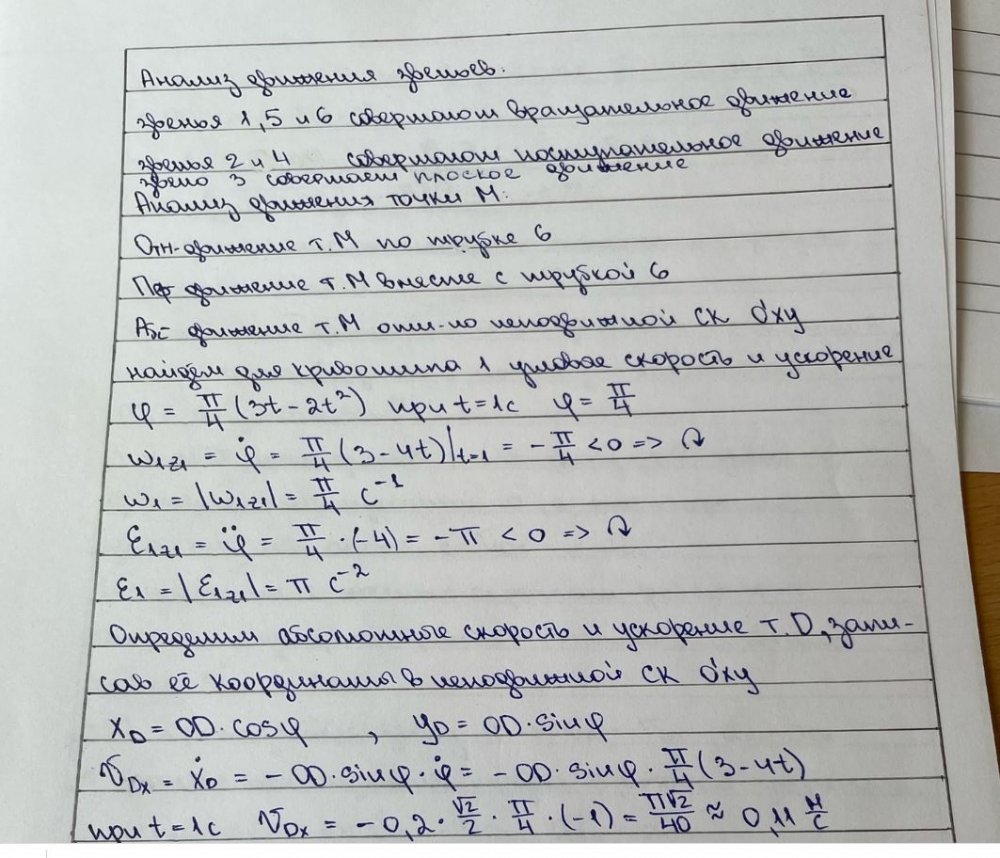 Анализ движения звеньев.
звенья 1,5 и 6 совершают вращательное движение
звенья 2 и 4 совершают поступательное движение
звено 3 совершает плоское движение
Анализ движения точки М:
Отн-движение т.М по трубке 6
Пер движение т.М вместе с трубкой 6
Абс движение т.М отн-но неподвижной СК O'xy
найдём для кривошипа 1 угловая скорость и ускорение
φ = π/4 (3t - 2t²) при t=1c φ = π/4
ω₁z₁ = φ̇ = π/4 (3-4t)|t=1 = - π/4 < 0 => ↷
ω₁ = |ω₁z₁| = π/4 c⁻¹
ε₁z₁ = φ̈ = π/4 · (-4) = -π < 0 => ↷
ε₁ = |ε₁z₁| = π c⁻²
Определим абсолютные скорость и ускорение т. D, запи-
сав её координаты в неподвижной СК O'xy
x_D = OD · cosφ , y_D = OD · sinφ
v_Dx = ẋ_D = - OD · sinφ · φ̇ = - OD · sinφ · π/4 (3-4t)
при t=1c v_Dx = -0,2 · √2/2 · π/4 · (-1) = π√2/40 ≈ 0,11 м/с